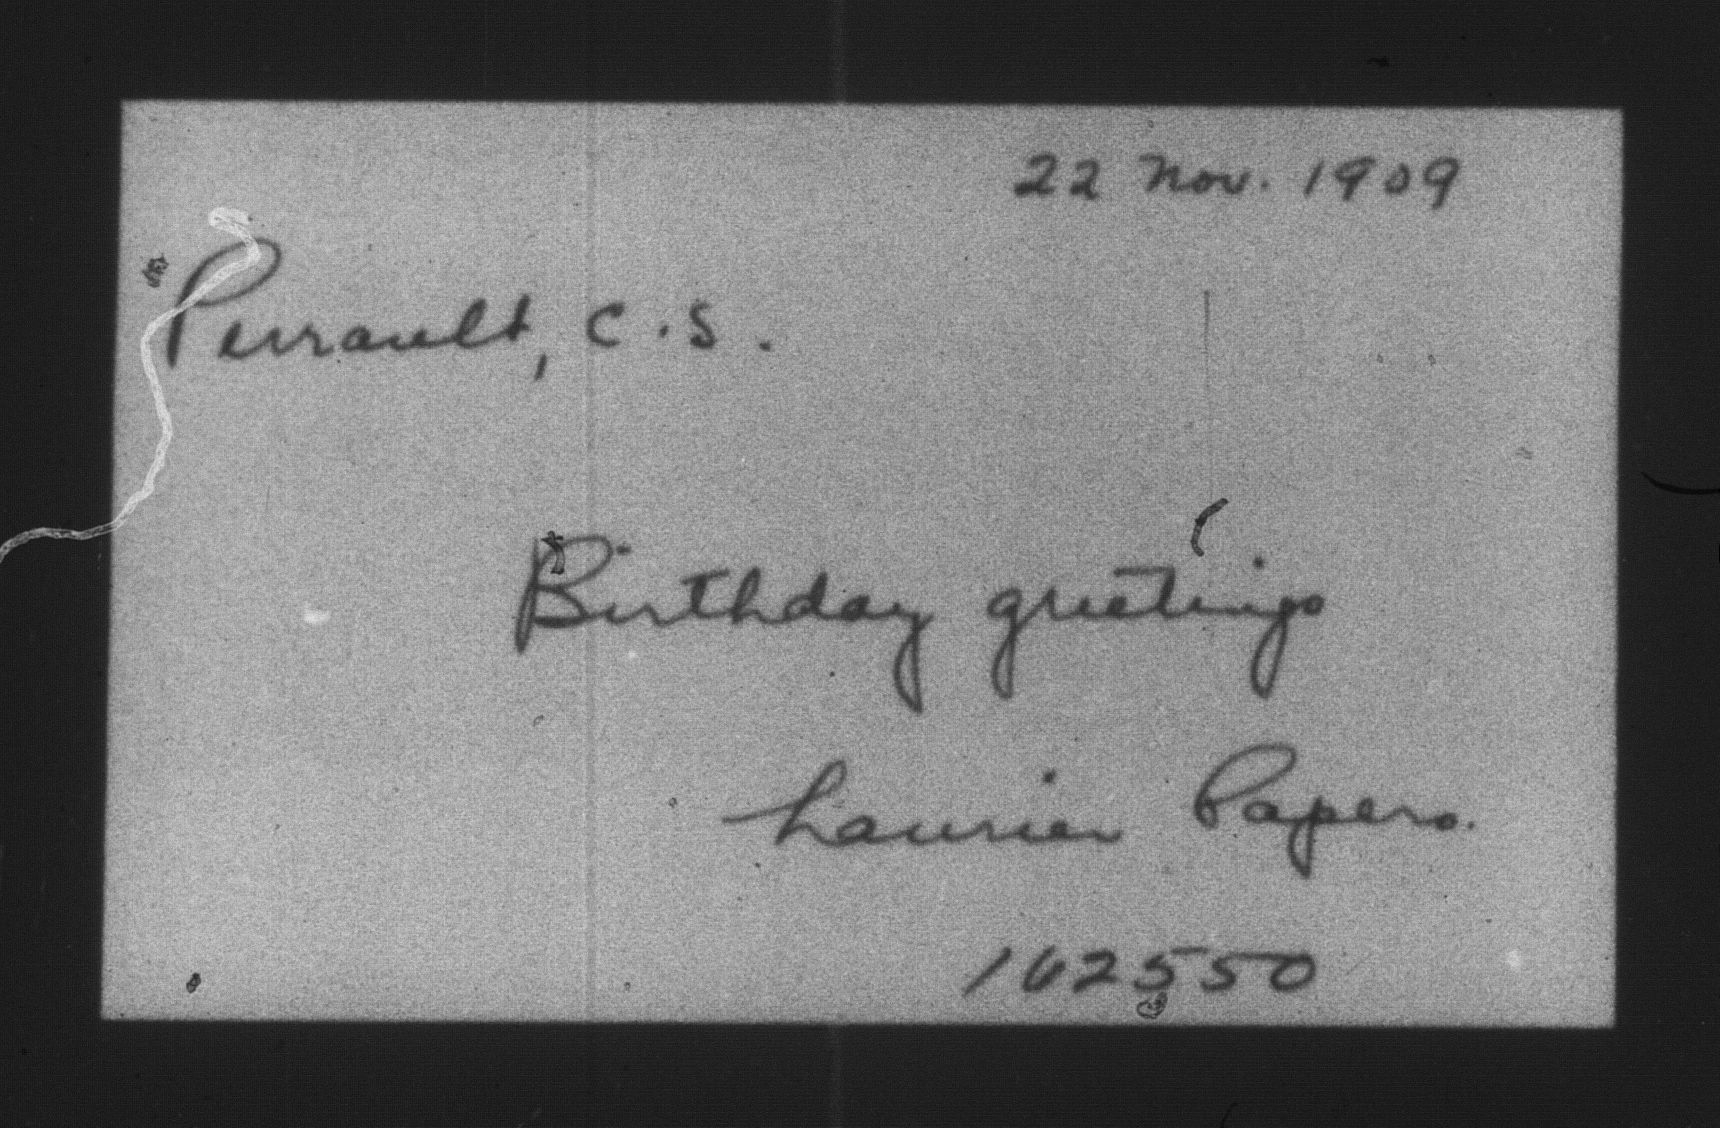 22 Nov. 1909
Perrault, C.S.
Birthday greetings
Laurier Papers.
162550